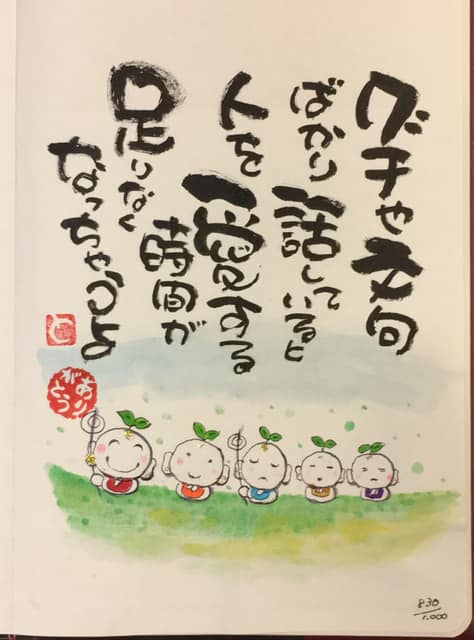 グチや文句
ばかり話していると
人を愛する
時間が
足りなく
なっちゃうよ
ありがとう
830
1,000